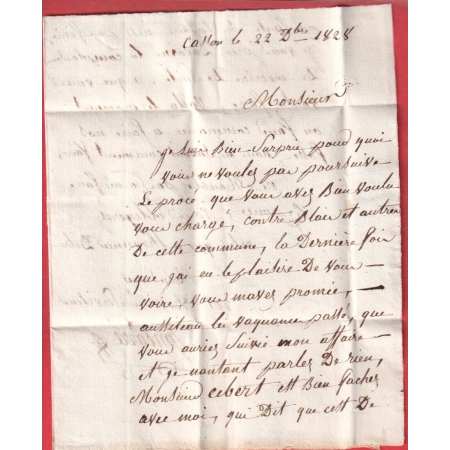 le 22 Dbre 1828
Monsieur
je suis Bien Surpris pour quoi
vous ne voules pas poursuivre
Le procé que vous aves Bien voulu
vous chargé, contre Blac et autres
De cette commune, la Dernière foix
que jai eu le plaisire De vous
voire, vous maves promie,
aussiteau les vaquance passé, que
vous auries Suivie mon affaire
Et je nantant parles De rien,
Monsieur Cebert est Bien faches
avec moi, qui Dit que cett De